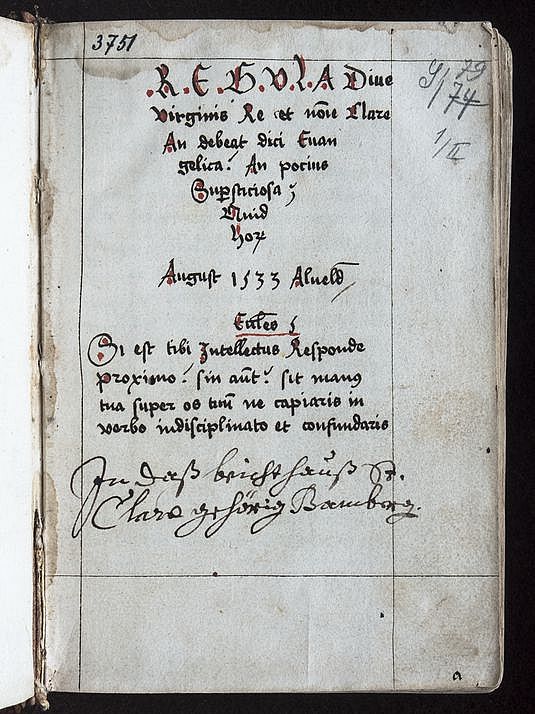 3751
.R.E.G.V.L.A Diue
Virginis Re et noïe Clare
An debeat dici Euan
gelica? An pocius
Supsticiosa ?
Quid
hor
August 1533 Alueld
Eccles 5
Si est tibi Intellectus Responde
proximo? sin aūt? sit manꝰ
tua super os tuū ne capiaris in
verbo indisciplinato et confundaris
In daß beicht hauß S.
Clare gehörig Bamberg.
79
174
1/II
a